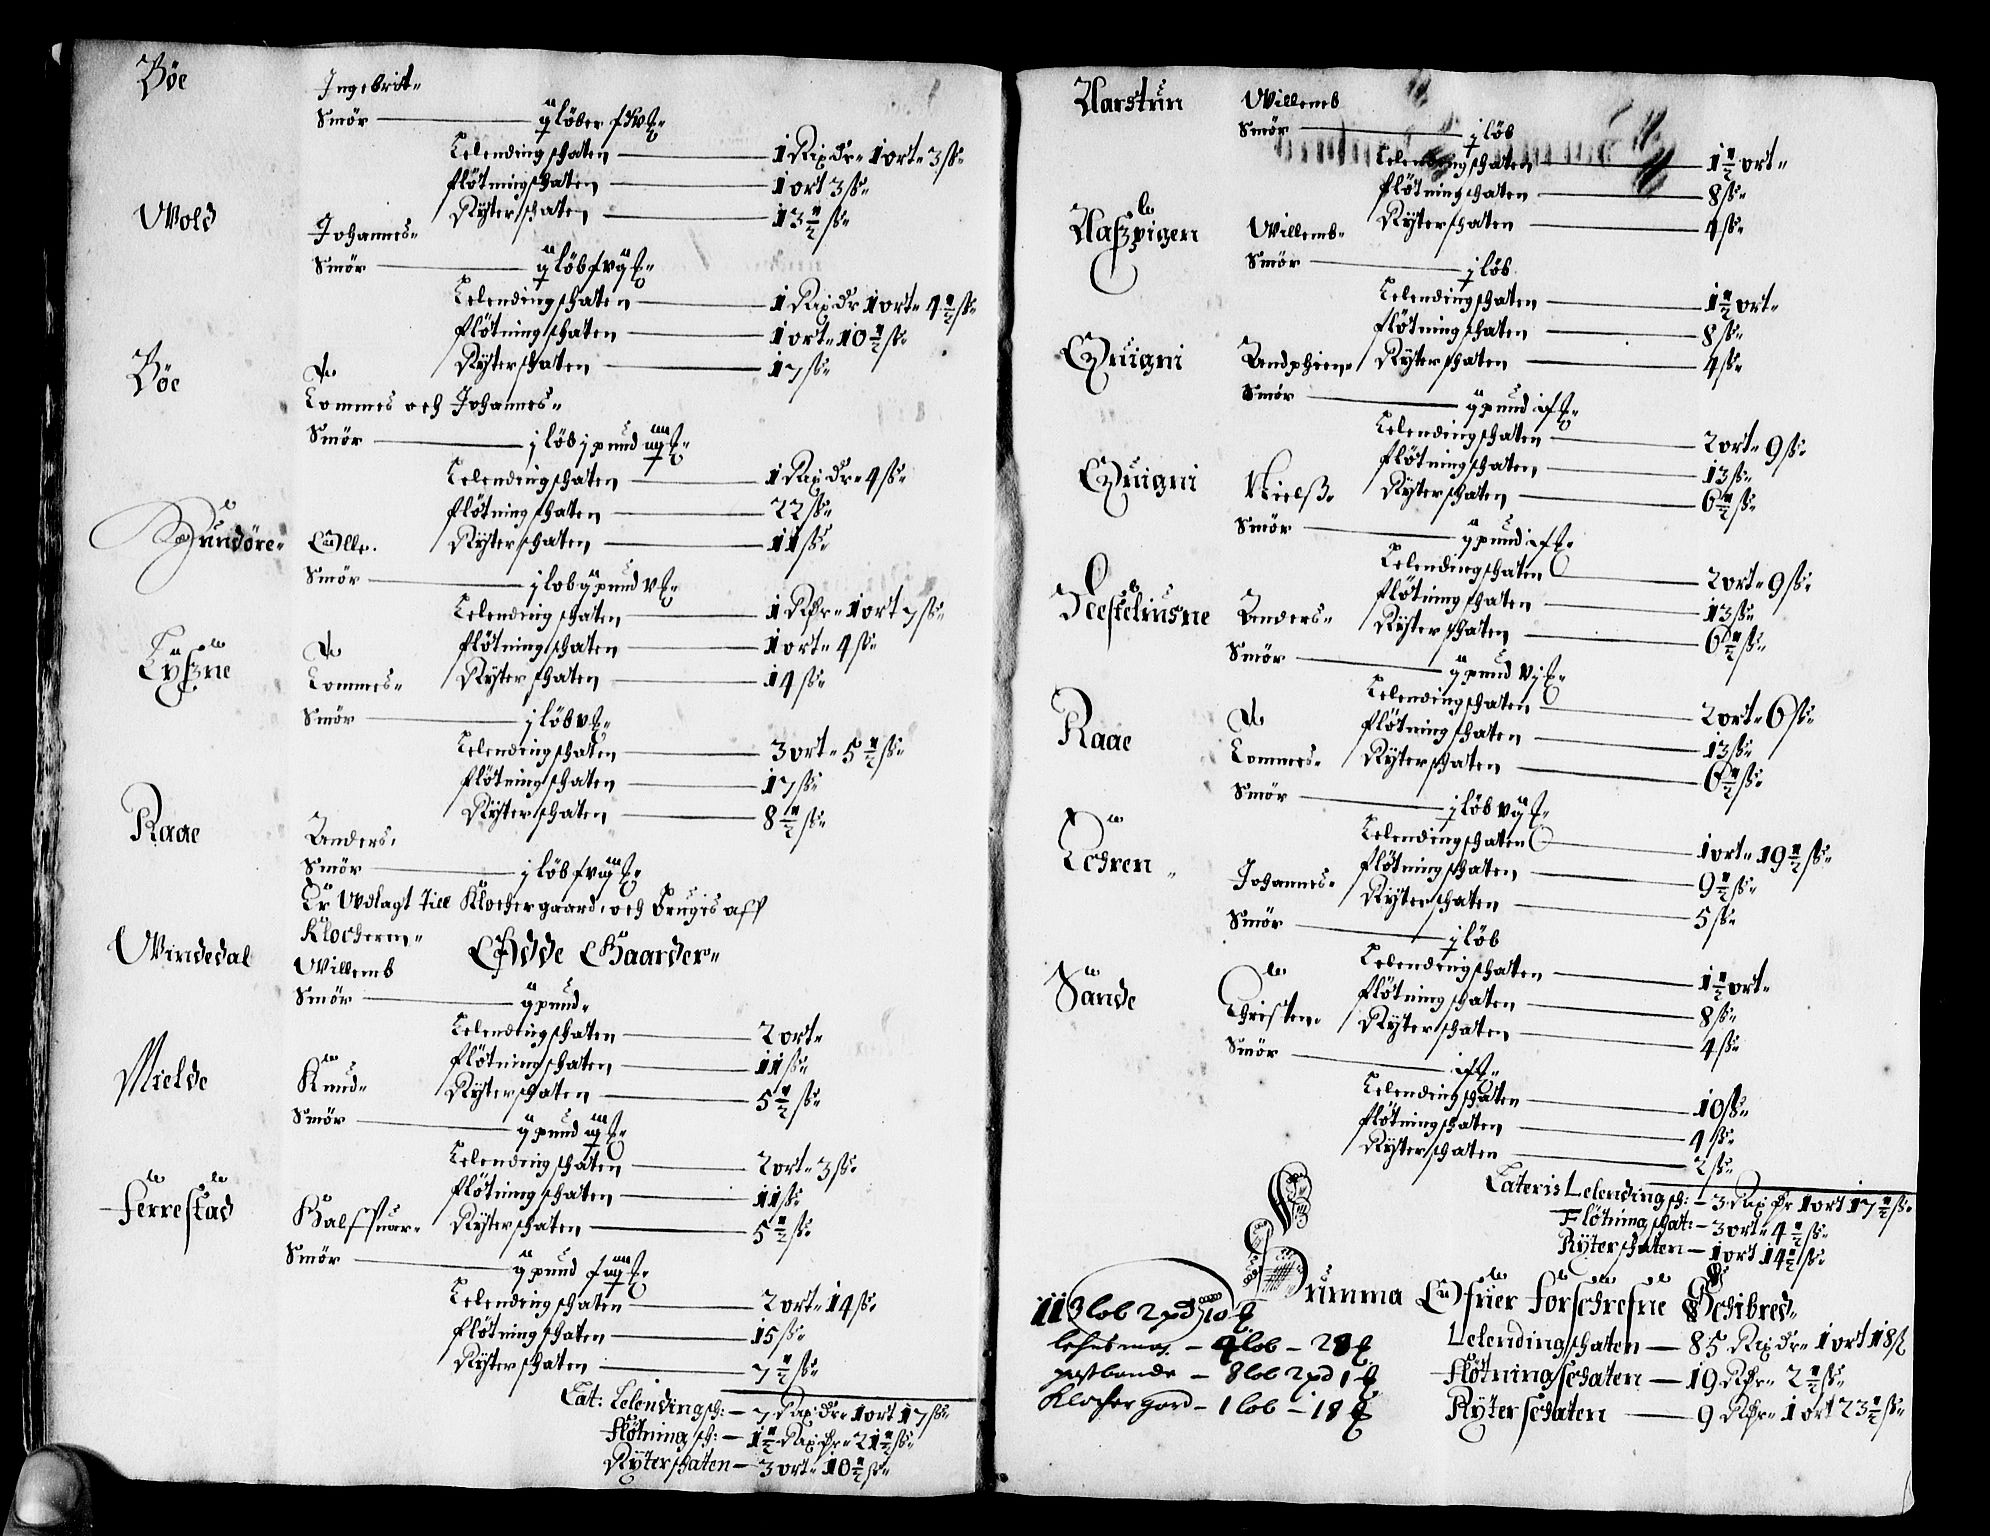 Böe
Ingebrit-
Smör — ij löber
Lelendingschaten — 1 Rix dr- 1 ort- 3 ss-
flötningschaten — 1 ort 3 ss-
Ryterschaten — 13 1/2 ss-
Wold
Johannes-
Smör — ij löb
Lelendingschaten — 1 Rix dr 1 ort- 4 1/2 ss-
flötningschaten — 1 ort- 10 1/2 ss-
Ryterschaten — 17 ss-
Böe
Tommes och Johannes-
Smör — j löb j pund
Lelendingschaten — 1 Rix dr- 4 ss-
flötningschaten — 22 ss-
Ryterschaten — 11 ss-
Sundöre-
Olle.
Smör — j lob ij pund v
Lelendingschaten — 1 Rdr- 1 ort 7 ss-
flötningschaten — 1 ort- 4 ss-
Ryterschaten — 14 ss-
Lyszne
Tommes-
Smör — j löb v
Lelendingschaten — 3 ort- 5 1/2 ss-
flötningschaten — 17 ss-
Ryterschaten — 8 1/2 ss-
Raae
Anders.
Smör — j löb
Er Udlagt Till Klochergaard, och brugis aff
Klocheren-
Ödde Gaarder-
Windedal
Willemb
Smör — ij pund-
Lelendingschaten — 2 ort-
flötningschaten — 11 ss-
Ryterschaten — 5 1/2 ss-
Mielde
Knud-
Smör — ij pund iiij
Lelendingschaten — 2 ort- 3 ss-
flötningschaten — 11 ss-
Ryterschaten — 5 1/2 ss-
Ferrestad
Halffuar-
Smör — ij pund
Lelendingschaten — 2 ort- 14 ss-
flötningschaten — 15 ss-
Ryterschaten — 7 1/2 ss-
Lat: Lelendingsch: — 7 Rix dr- 1 ort 17 ss-
Flötningsch: — 1 1/2 Rix dr- 21 1/2 ss-
Ryterschaten — 3 ort- 10 1/2 ss-
Aarstun
Willemb
Smör — j löb
Lelendingschaten — 1 1/2 ort-
flötningschaten — 8 ss-
Ryterschaten — 4 ss-
Willemb-
Smör — j löb
Lelendingschaten — 1 1/2 ort-
flötningschaten — 8 ss-
Ryterschaten — 4 ss-
Quigni
Smör — ij pund
Lelendingschaten — 2 ort- 9 ss-
flötningschaten — 13 ss-
Ryterschaten — 6 1/2 ss-
Quigni
Nielss-
Smör — ij pund
Lelendingschaten — 2 ort- 9 ss-
flötningschaten — 13 ss-
Ryterschaten — 6 1/2 ss-
Anders-
Smör — ij pund vj
Lelendingschaten — 2 ort- 6 ss-
flötningschaten — 13 ss-
Ryterschaten — 6 1/2 ss-
Raae
Tommes-
Smör — j löb vij
Lelendingschaten — 1 ort- 19 1/2 ss-
flötningschaten — 9 1/2 ss-
Ryterschaten — 5 ss-
Johannes-
Smör — j löb
Lelendingschaten — 1 1/2 ort-
flötningschaten — 8 ss-
Ryterschaten — 4 ss-
Sande
Christen-
Smör
Lelendingschaten — 10 ss-
flötningschaten — 4 ss-
Ryterschaten — 2 ss-
Lateris Lelendingsch: — 3 Rix dr 1 ort 17 1/2 ss-
Flötningschat: — 3 ort- 4 1/2 ss-
Ryterschaten — 1 ort 14 1/2 ss-
Summa Ofuer forschrefne Schibred-
Lelendingschaten — 85 Rix dr- 1 ort 18 ss
Flötningschaten — 19 Rdr- 2 1/2 ss-
Ryterschaten — 9 Rdr- 1 ort 23 1/2 ss-
113 lob 2 pd 10
lehnsma. — 4 lob — 28
postbande — 8 lob 2 pd 1
Klocher gord — 1 lob — 18